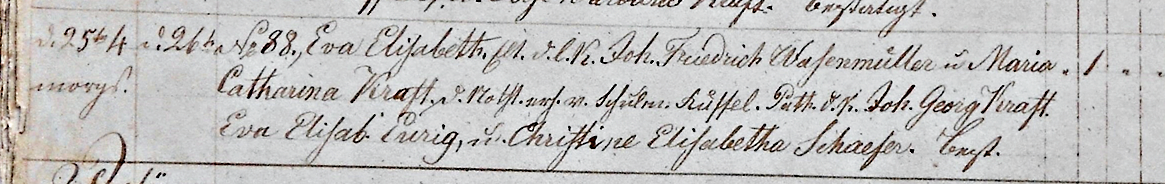 Kraft.
d. 25t 4 d. 26t. No 88., Eva Elisabeth, d. l. K. Joh. Friedrich Wasenmüller u Maria 1
morgs. Catharina Kraft, d. v. Schulm. Küssel. Path. d. K. Joh. Georg Kraft.
Eva Elisab. Eurig, u. Christine Elisabetha Schaefer.